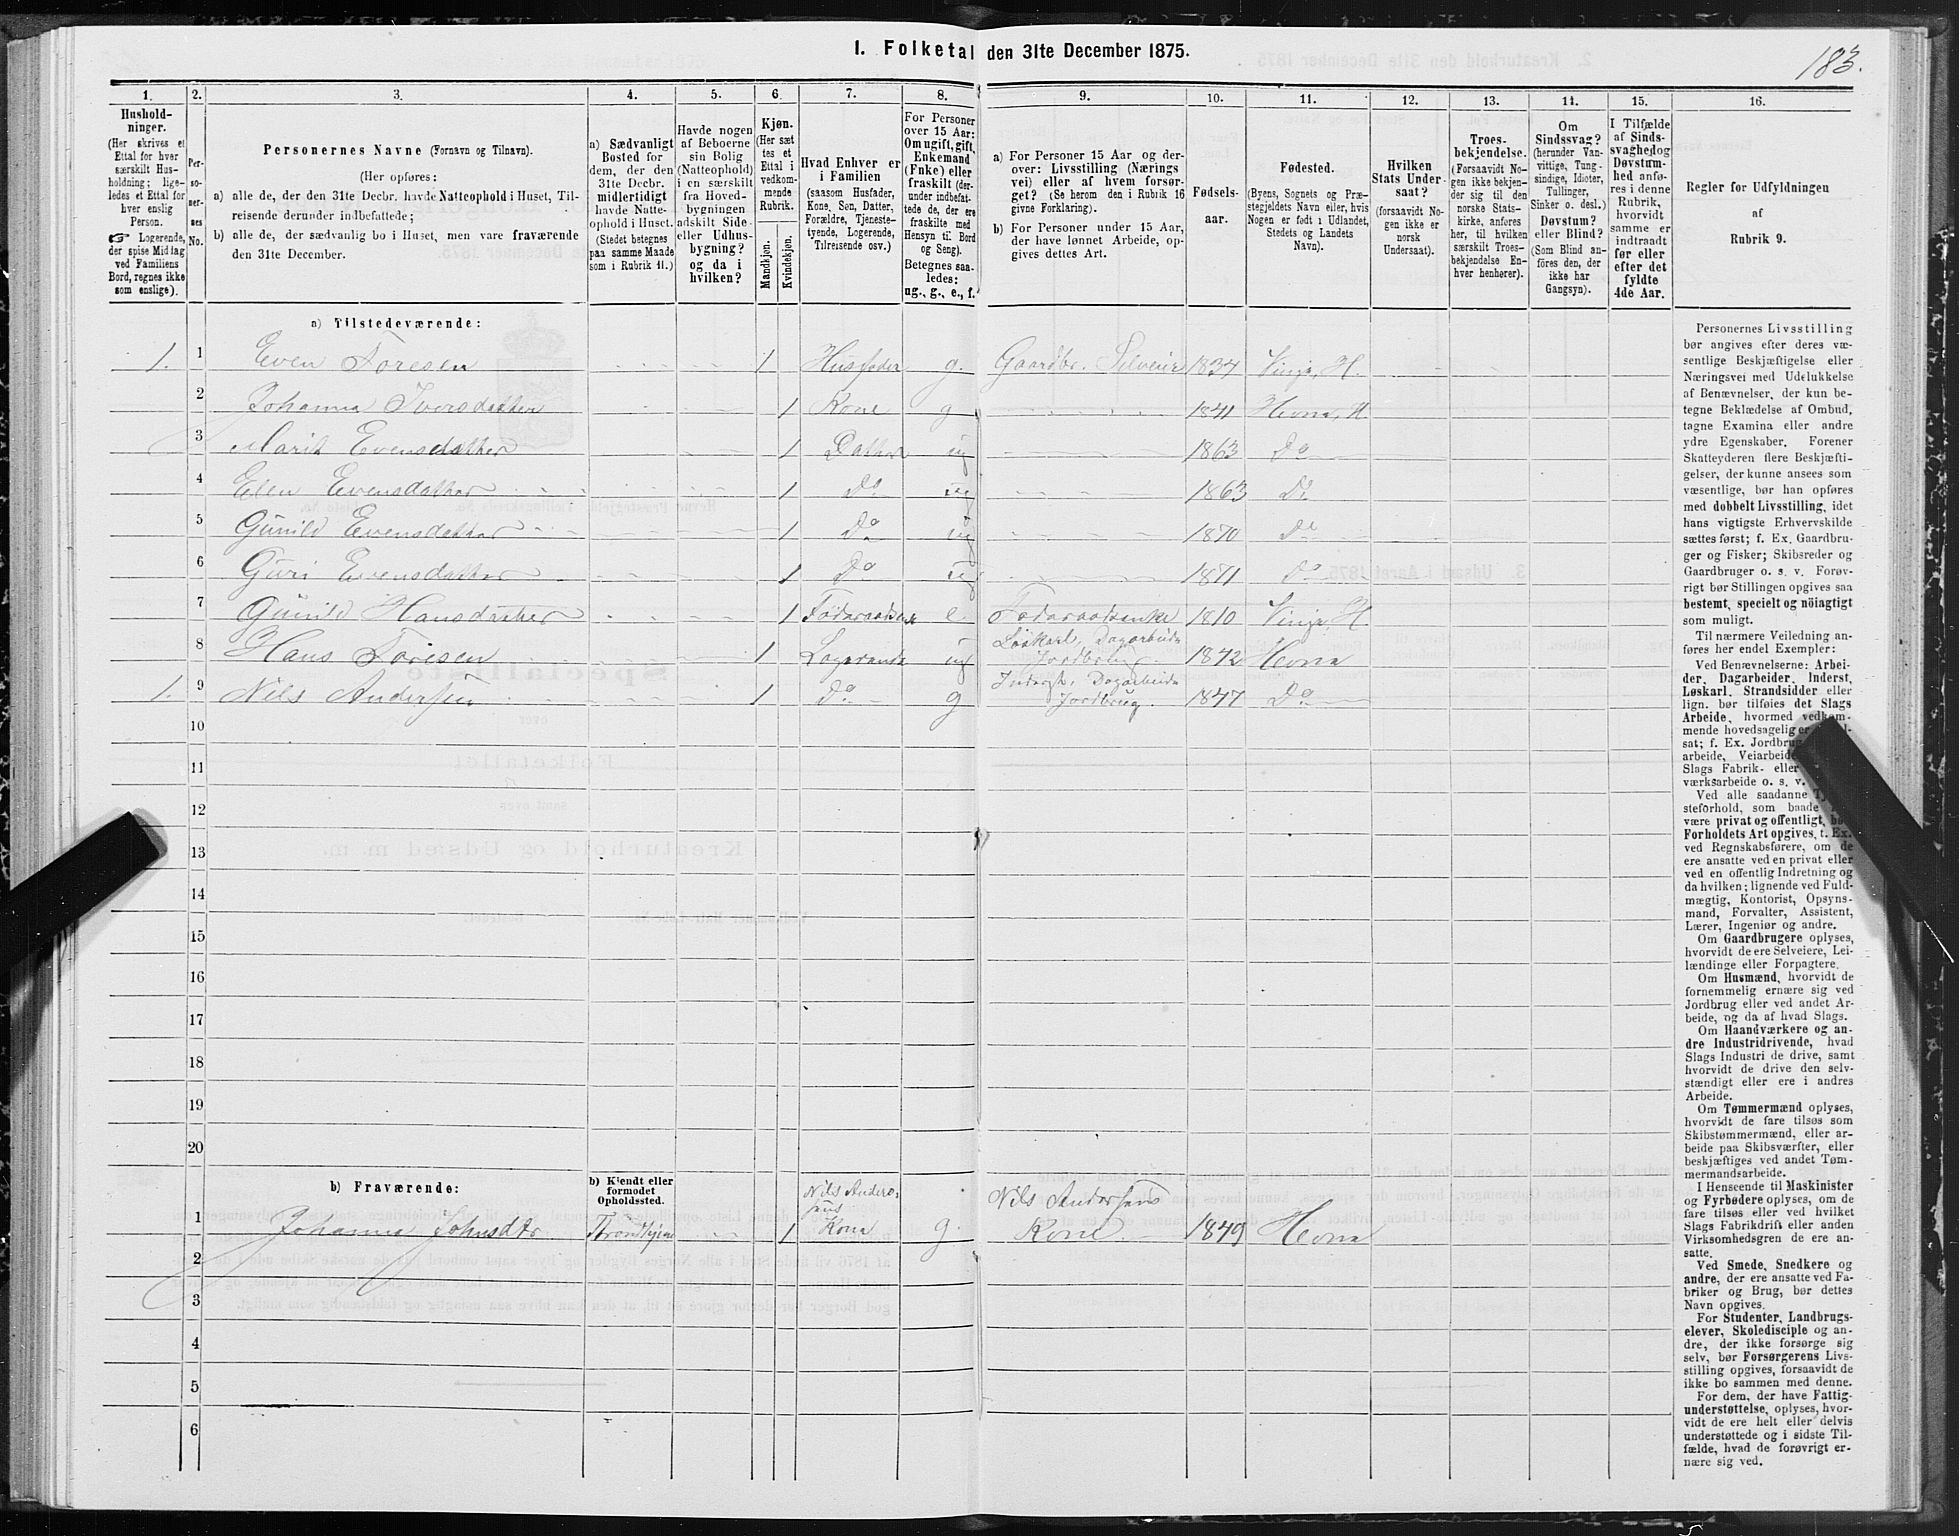 183.
1. Folketal den 31te December 1875.
1. 2. 3. 4. 5. 6. 7. 8. 9. 10. 11. 12. 13. 14. 15. 16.
Hushold-
ninger.
(Her skrives et
Ettal for hver
særskilt Hus-
holdning; lige-
ledes et Ettal for
hver enslig
Person.
☞ Logerende,
der spise Middag
ved Familiens
Bord, regnes ikke
som enslige).
Per-
so-
ner-
nes
No.
Personernes Navne (Fornavn og Tilnavn).
(Her opføres:
a) alle de, der den 31te Decbr. havde Natteophold i Huset, Til-
reisende derunder indbefattede;
b) alle de, der sædvanlig bo i Huset, men vare fraværende
den 31te December.
a) Sædvanligt
Bosted for
dem, der den
31te Decbr.
midlertidigt
havde Natte-
ophold i Huset.
(Stedet betegnes
paa samme Maade
som i Rubrik 11.)
Havde nogen
af Beboerne
sin Bolig
(Natteophold)
i en særskilt
fra Hoved-
bygningen
adskilt Side-
eller Udhus-
bygning?
og da i
hvilken?
Kjøn.
(Her sæt
tes et
Ettal i
vedkom-
mende
Rubrik.
Mandkjøn.
Kvindekjøn.
Hvad Enhver er
i Familien
(saasom Husfader,
Kone, Søn, Datter,
Forældre, Tjeneste-
tyende, Logerende,
Tilreisende osv.)
For Personer
over 15 Aar:
Om ugift, gift,
Enkemand
(Enke) eller
fraskilt (der-
under indbefat-
tede de, der ere
fraskilte med
Hensyn til Bord
og Seng).
Betegnes saa-
ledes:
ug., g., e., f.
a) For Personer 15 Aar og der-
over: Livsstilling (Nærings
vei) eller af hvem forsør-
get? (Se herom den i Rubrik 16
givne Forklaring).
b) For Personer under 15 Aar,
der have lønnet Arbeide, op-
gives dettes Art.
Fødsels-
aar.
Fødested.
(Byens, Sognets og Præ-
stegjeldets Navn eller, hvis
Nogen er født i Udlandet,
Stedets og Landets
Navn).
Hvilken
Stats Under-
saat?
(forsaavidt No-
gen ikke er
norsk
Undersaat).
Troes-
bekjendelse.
(Forsaavidt No-
gen ikke bekjen-
der sig til den
norske Stats-
kirke, anføres
her, til hvilken
særskilt Troes-
bekjendelse En-
hver henhører).
Om
Sindssvag?
(herunder Van-
vittige, Tung-
sindige, Idioter,
Tullinger,
Sinker o. desl.)
Døvstum?
eller Blind?
(Som Blind an-
føres den, der
ikke har
Gangsyn).
I Tilfælde
af Sinds-
svaghed og
Døvstum-
hed anfø-
res i denne
Rubrik,
hvorvidt
samme er
indtraadt
før eller
efter det
fyldte
4de Aar.
Regler for Udfyldningen
af
Rubrik 9.
a) Tilstedeværende:
1. 1 Even Toresen 1 Husfader g. Gaardbr. Selveier 1834 Vinje, H.
2 Johanna Iversdatter 1 Kone g 1841 Hevne, H
3 Marit Evensdatter 1 Datter ug 1863 Do
4 Elen Evensdatter 1 Do ug 1863 Do
5 Gunild Evensdatter 1 Do ug 1870 Do
6 Guri Evensdatter 1 Do ug 1871 Do
7 Gunild Hansdatter 1 e. Føderaadsenke 1810 Vinje, H.
8 Hans Toresen 1 Logerende ug Løskarl, Dagarbeide Jordbrug 1842 Hevne
1. 9 Nils Andersen 1 Do g Inderst, Dagarbeide Jordbrug. 1847 Do
10
11
12
13
14
15
16
17
18
19
20
b) Fraværende:
b) Kjendt eller
formodet
Opholdssted.
1 Johanna Johnsdtr Throndhjem 1 Nils Andersens Kone g. Nils Andersens Kone 1849 Hevne
2
3
4
5
6
Personernes Livsstilling
bør angives efter deres væ-
sentlige Beskjæftigelse eller
Næringsvei med Udelukkelse
af Benævnelser, der kun be-
tegne Beklædelse af Ombud,
tagne Examina eller andre
ydre Egenskaber. Forener
Skatteyderen flere Beskjæfti-
gelser, der kunne ansees som
væsentlige, bør han opføres
med dobbelt Livsstilling, idet
hans vigtigste Erhvervskilde
sættes først; f. Ex. Gaardbru-
ger og Fisker; Skibsreder og
Gaardbruger o. s. v. Forøv-
rigt bør Stillingen opgives saa
bestemt, specielt og nöiagtigt
som muligt.
Til nærmere Veiledning an-
føres her endel Exempler:
Ved Benævnelserne: Arbei-
der, Dagarbeider, Inderst,
Løskarl, Strandsidder eller
lign. bør tilføies det Slags
Arbeide, hvormed vedkom-
mende hovedsagelig er
sat; f. Ex. Jordbrug
arbeide, Veiarbeide
Slags Fabrik- eller
værksarbeide o. s. v.
Ved alle saadanne
steforhold, som baade
være privat og offentligt, bør
Forholdets Art opgives, t. Ex.
ved Regnskabsførere, om de
ere ansatte ved en privat eller
ved en offentlig Indretning og
da hvilken; lignende ved Fuld-
mægtig, Kontorist, Opsyns-
mand, Forvalter, Assistent,
Lærer, Ingeniør og andre.
Om Gaardbrugere oplyses,
hvorvidt de ere Selveiere, Lei-
lændinge eller Forpagtere.
Om Husmænd, hvorvidt de
fornemmelig ernære sig ved
Jordbrug eller ved andet Ar-
beide, og da af hvad Slags.
Om Haandværkere og an-
dre Industridrivende, hvad
Slags Industri de drive, samt
hvorvidt de drive den selv-
stændigt eller ere i andres
Arbeide.
Om Tømmermænd oplyses,
hvorvidt de fare tilsøs som
Skibstømmermænd, eller ar-
beide paa Skibsværfter, eller
beskjæftiges ved andet Tøm-
mermandsarbeide.
I Henseende til Maskinister
og Fyrbødere oplyses, om de
fare tilsøs eller ved hvilket
Slags Fabrikdrift eller anden
Virksomhedsgren de ere an-
satte.
Ved Smede, Snedkere og
andre, der ere ansatte ved Fa-
briker og Brug, bør dettes
Navn opgives.
For Studenter, Landbrugs-
elever, Skoledisciple og an-
dre, der ikke forsørge sig
selv, bør Forsørgerens Livs-
stilling opgives, forsaavidt de
ikke bo sammen med denne.
For dem, der have Fattig-
understøttelse, oplyses, hvor-
vidt de ere helt eller delvis
understøttede og i sidste Til-
fælde, hvad de forøvrigt er-
nære sig ved.